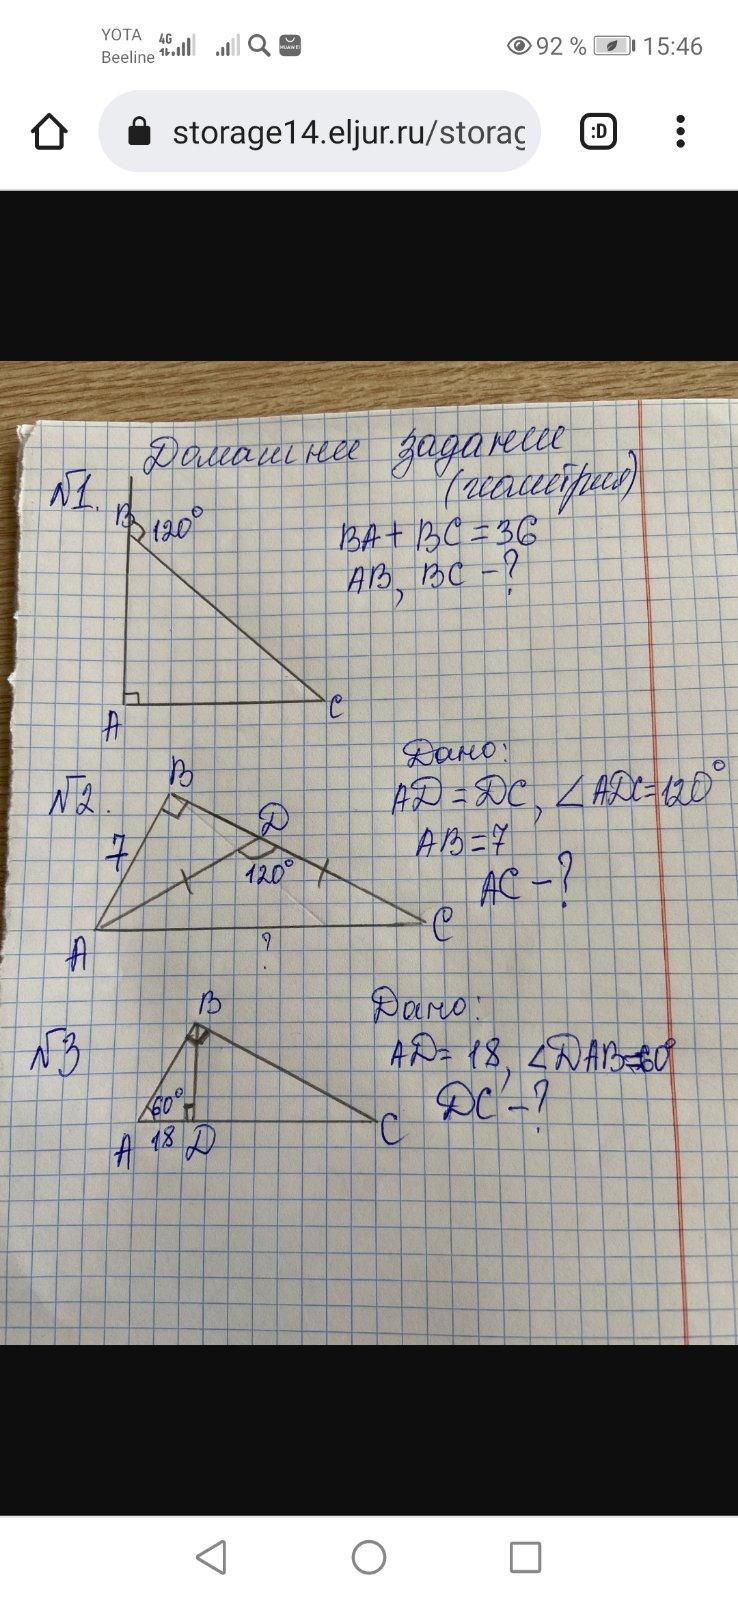 YOTA
Beeline
4G
HUAWEI
92 %
15:46
storage14.eljur.ru/storag
:D
Домашнее задание
(геометрия)
№1.
B
120°
BA + BC = 36
AB, BC - ?
A
C
№2.
B
Дано:
AD = DC, ∠ADC = 120°
D
7
120°
AB = 7
AC - ?
A
C
?
№3
B
Дано:
AD = 18, ∠DAB = 60°
DC - ?
60°
A
18
D
C